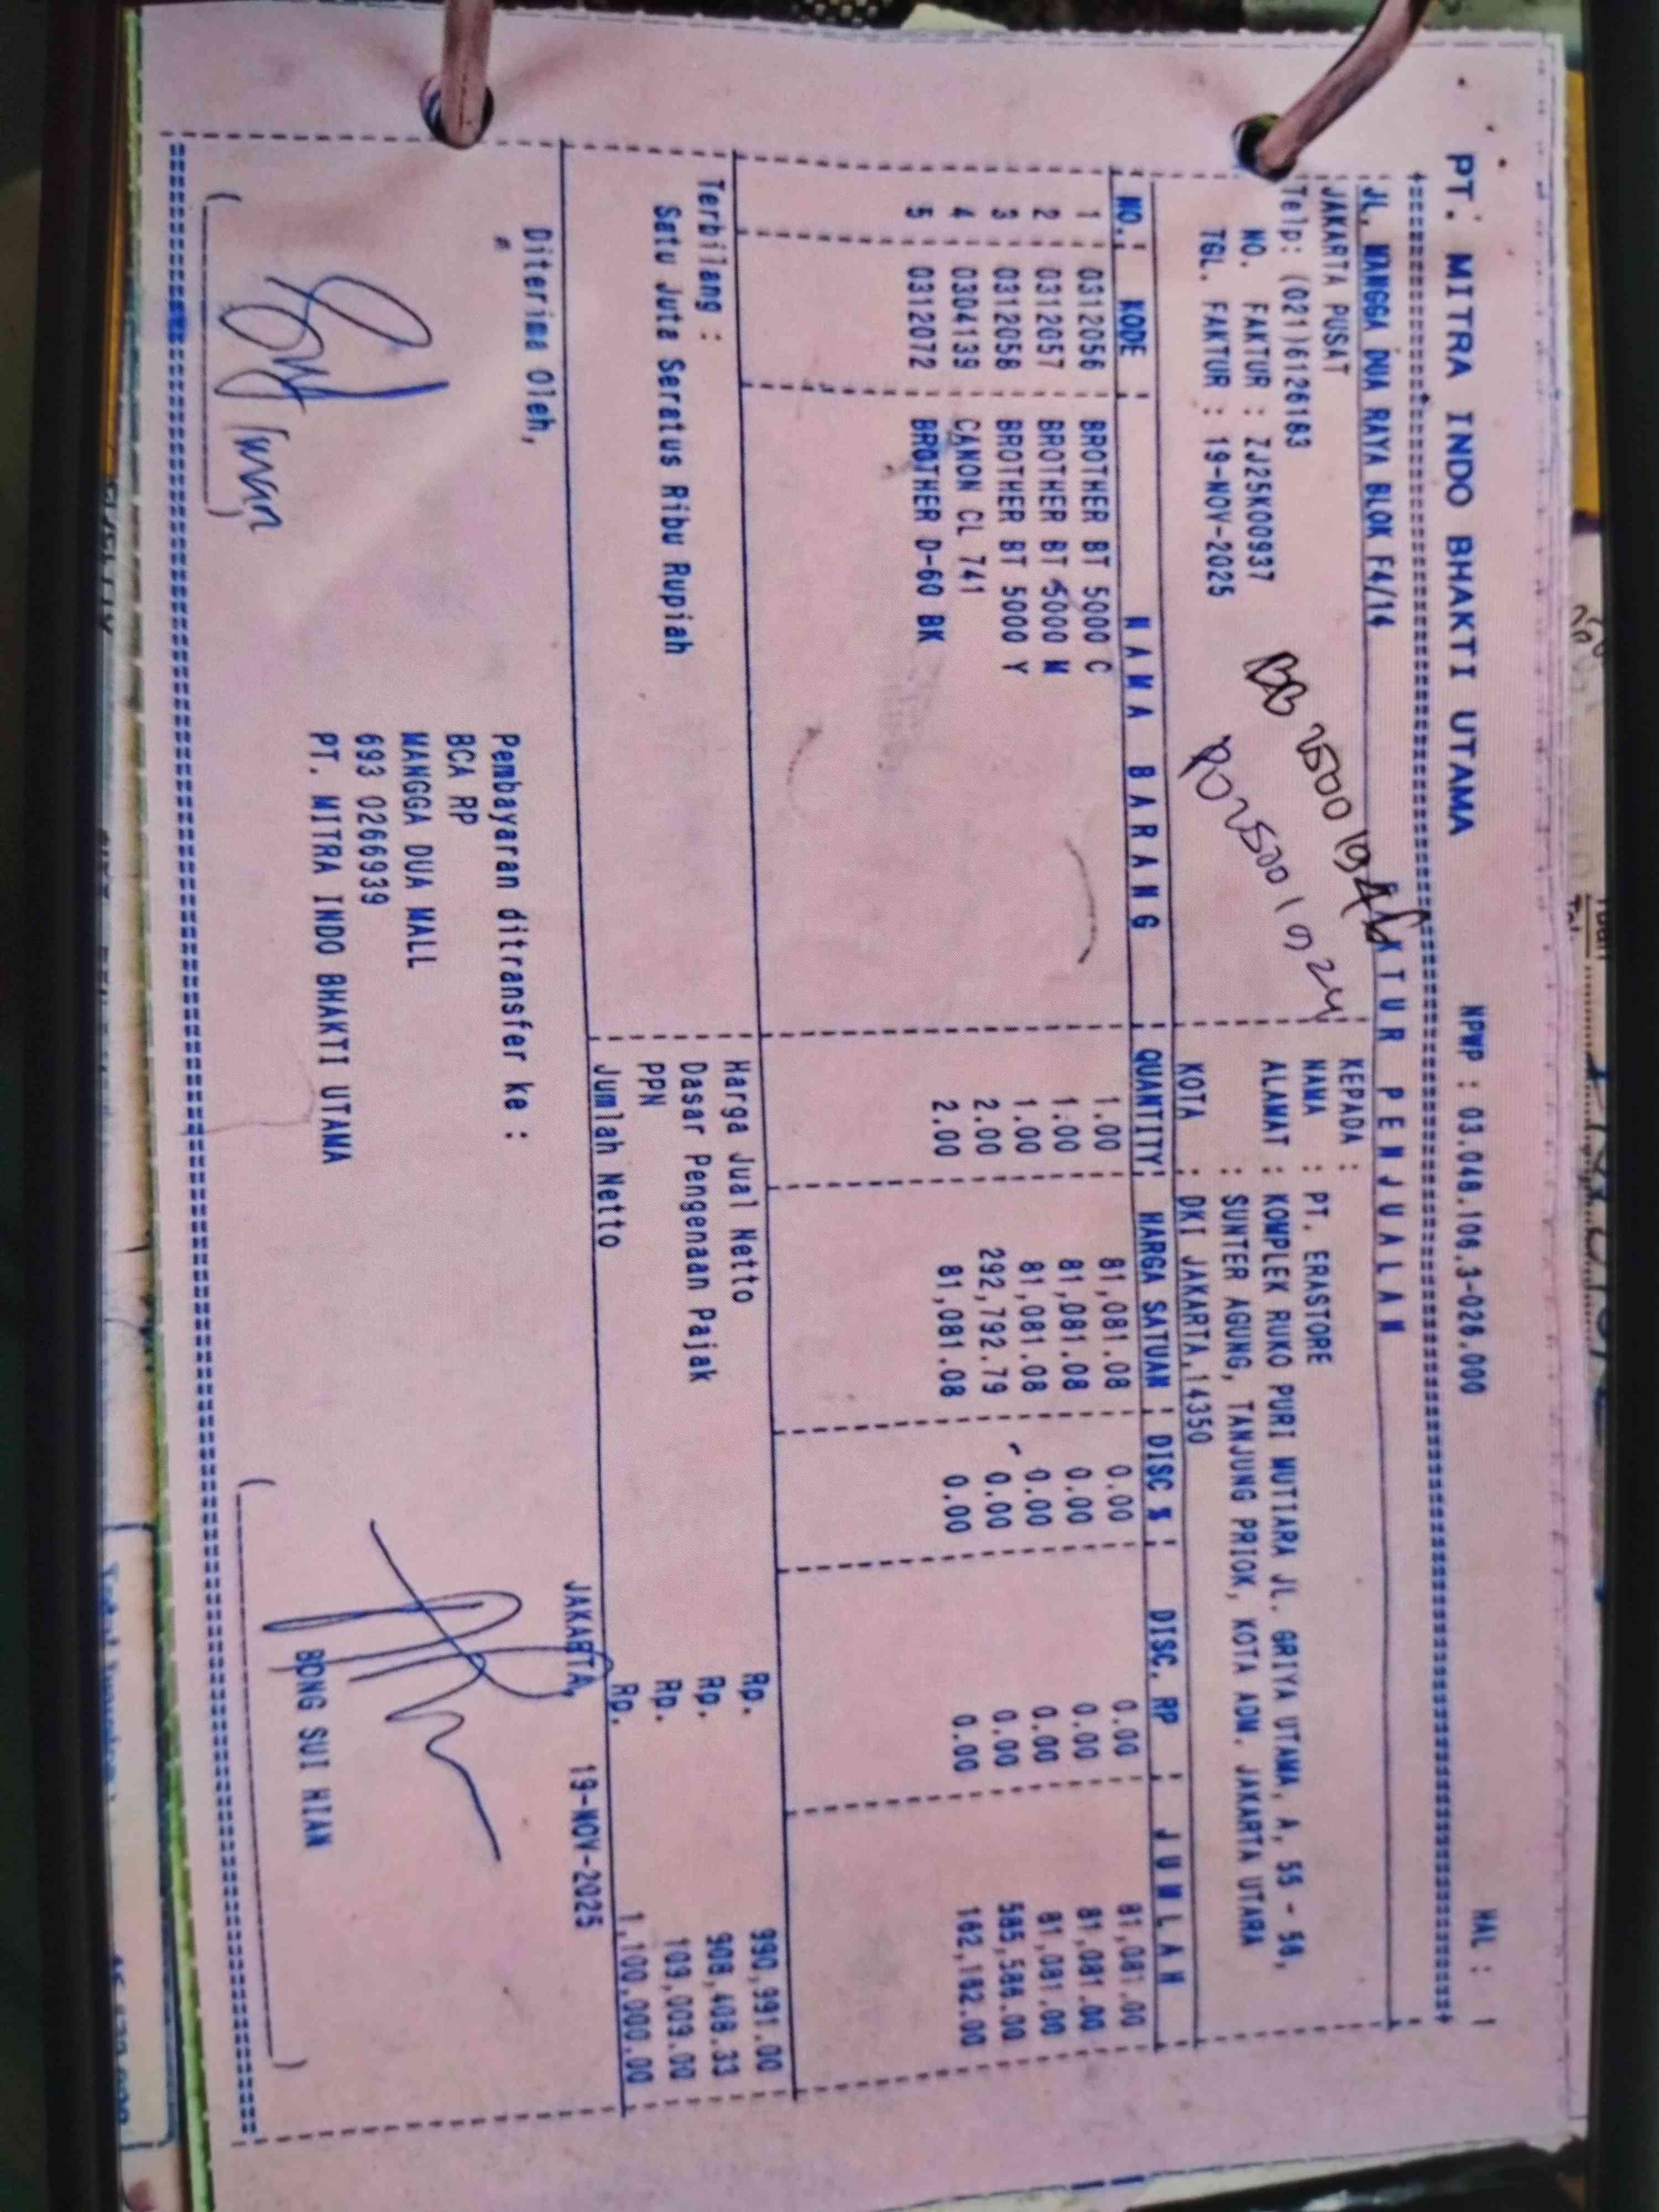 PT. MITRA INDO BHAKTI UTAMA NPWP : 03.048.106.3-026.000 HAL : 1
JL. MANGGA DUA RAYA BLOK F4/14 FAKTUR PENJUALAN
JAKARTA PUSAT KEPADA :
Telp: (021)6126183 NAMA : PT. ERASTORE
NO. FAKTUR : ZJ25K00937 ALAMAT : KOMPLEK RUKO PURI MUTIARA JL. GRIYA UTAMA, A, 55 - 56,
TGL. FAKTUR : 19-NOV-2025 : SUNTER AGUNG, TANJUNG PRIOK, KOTA ADM. JAKARTA UTARA
KOTA : DKI JAKARTA,14350
BB 25001946
PO25001924
NO. KODE NAMA BARANG QUANTITY HARGA SATUAN DISC % DISC. RP JUMLAH
1 0312056 BROTHER BT 5000 C 1.00 81,081.08 0.00 0.00 81,081.00
2 0312057 BROTHER BT 5000 M 1.00 81,081.08 0.00 0.00 81,081.00
3 0312058 BROTHER BT 5000 Y 1.00 81,081.08 0.00 0.00 81,081.00
4 0304139 CANON CL 741 2.00 292,792.79 0.00 0.00 585,586.00
5 0312072 BROTHER D-60 BK 2.00 81,081.08 0.00 0.00 162,162.00
Terbilang : Harga Jual Netto Rp. 990,991.00
Satu Juta Seratus Ribu Rupiah Dasar Pengenaan Pajak Rp. 908,408.33
PPN Rp. 109,009.00
Jumlah Netto Rp. 1,100,000.00
Diterima Oleh, Pembayaran ditransfer ke : JAKARTA, 19-NOV-2025
BCA RP
MANGGA DUA MALL
693 0266939
PT. MITRA INDO BHAKTI UTAMA BONG SUI HIAN
Iwan